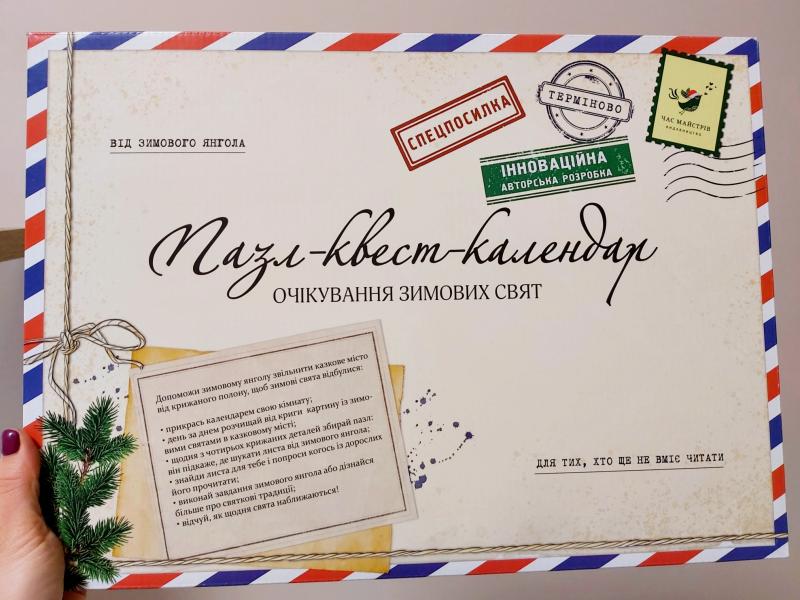 ВІД ЗИМОВОГО ЯНГОЛА
СПЕЦПОСИЛКА
ТЕРМІНОВО
ЧАС МАЙСТРІВ
ВИДАВНИЦТВО
ІННОВАЦІЙНА
АВТОРСЬКА РОЗРОБКА
Пазл-квест-календар
ОЧІКУВАННЯ ЗИМОВИХ СВЯТ
Допоможи зимовому янголу звільнити казкове місто
від крижаного полону, щоб зимові свята відбулися:
• прикрась календарем свою кімнату;
• день за днем розчищай від криги картину із зимо-
вими святами в казковому місті;
• щодня з чотирьох крижаних деталей збирай пазл:
він підкаже, де шукати листа від зимового янгола;
• знайди листа для тебе і попроси когось із дорослих
його прочитати;
• виконай завдання зимового янгола або дізнайся
більше про святкові традиції;
• відчуй, як щодня свята наближаються!
ДЛЯ ТИХ, ХТО ЩЕ НЕ ВМІЄ ЧИТАТИ